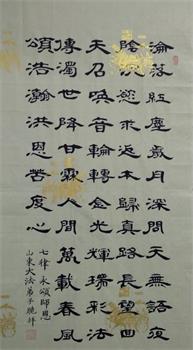 淪落紅塵歲月深問天無語夜
陰沉慾求返本歸真路
天召喚音輪轉金光輝瑞彩法
傳濁世降甘霖人間萬載春風
頌浩瀚洪恩苦度心
七律 永頌師恩
山東大法弟子